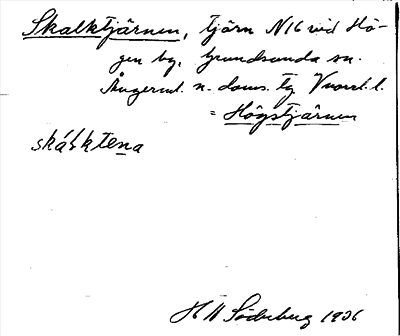 Skalktjärnen, tjärn N16 vid Hö-
gen by, Grundsunda sn.
Ångerml. n. doms. tg Vnorrl. l.
= Högstjärnen
skálktena
H W Söderberg 1936